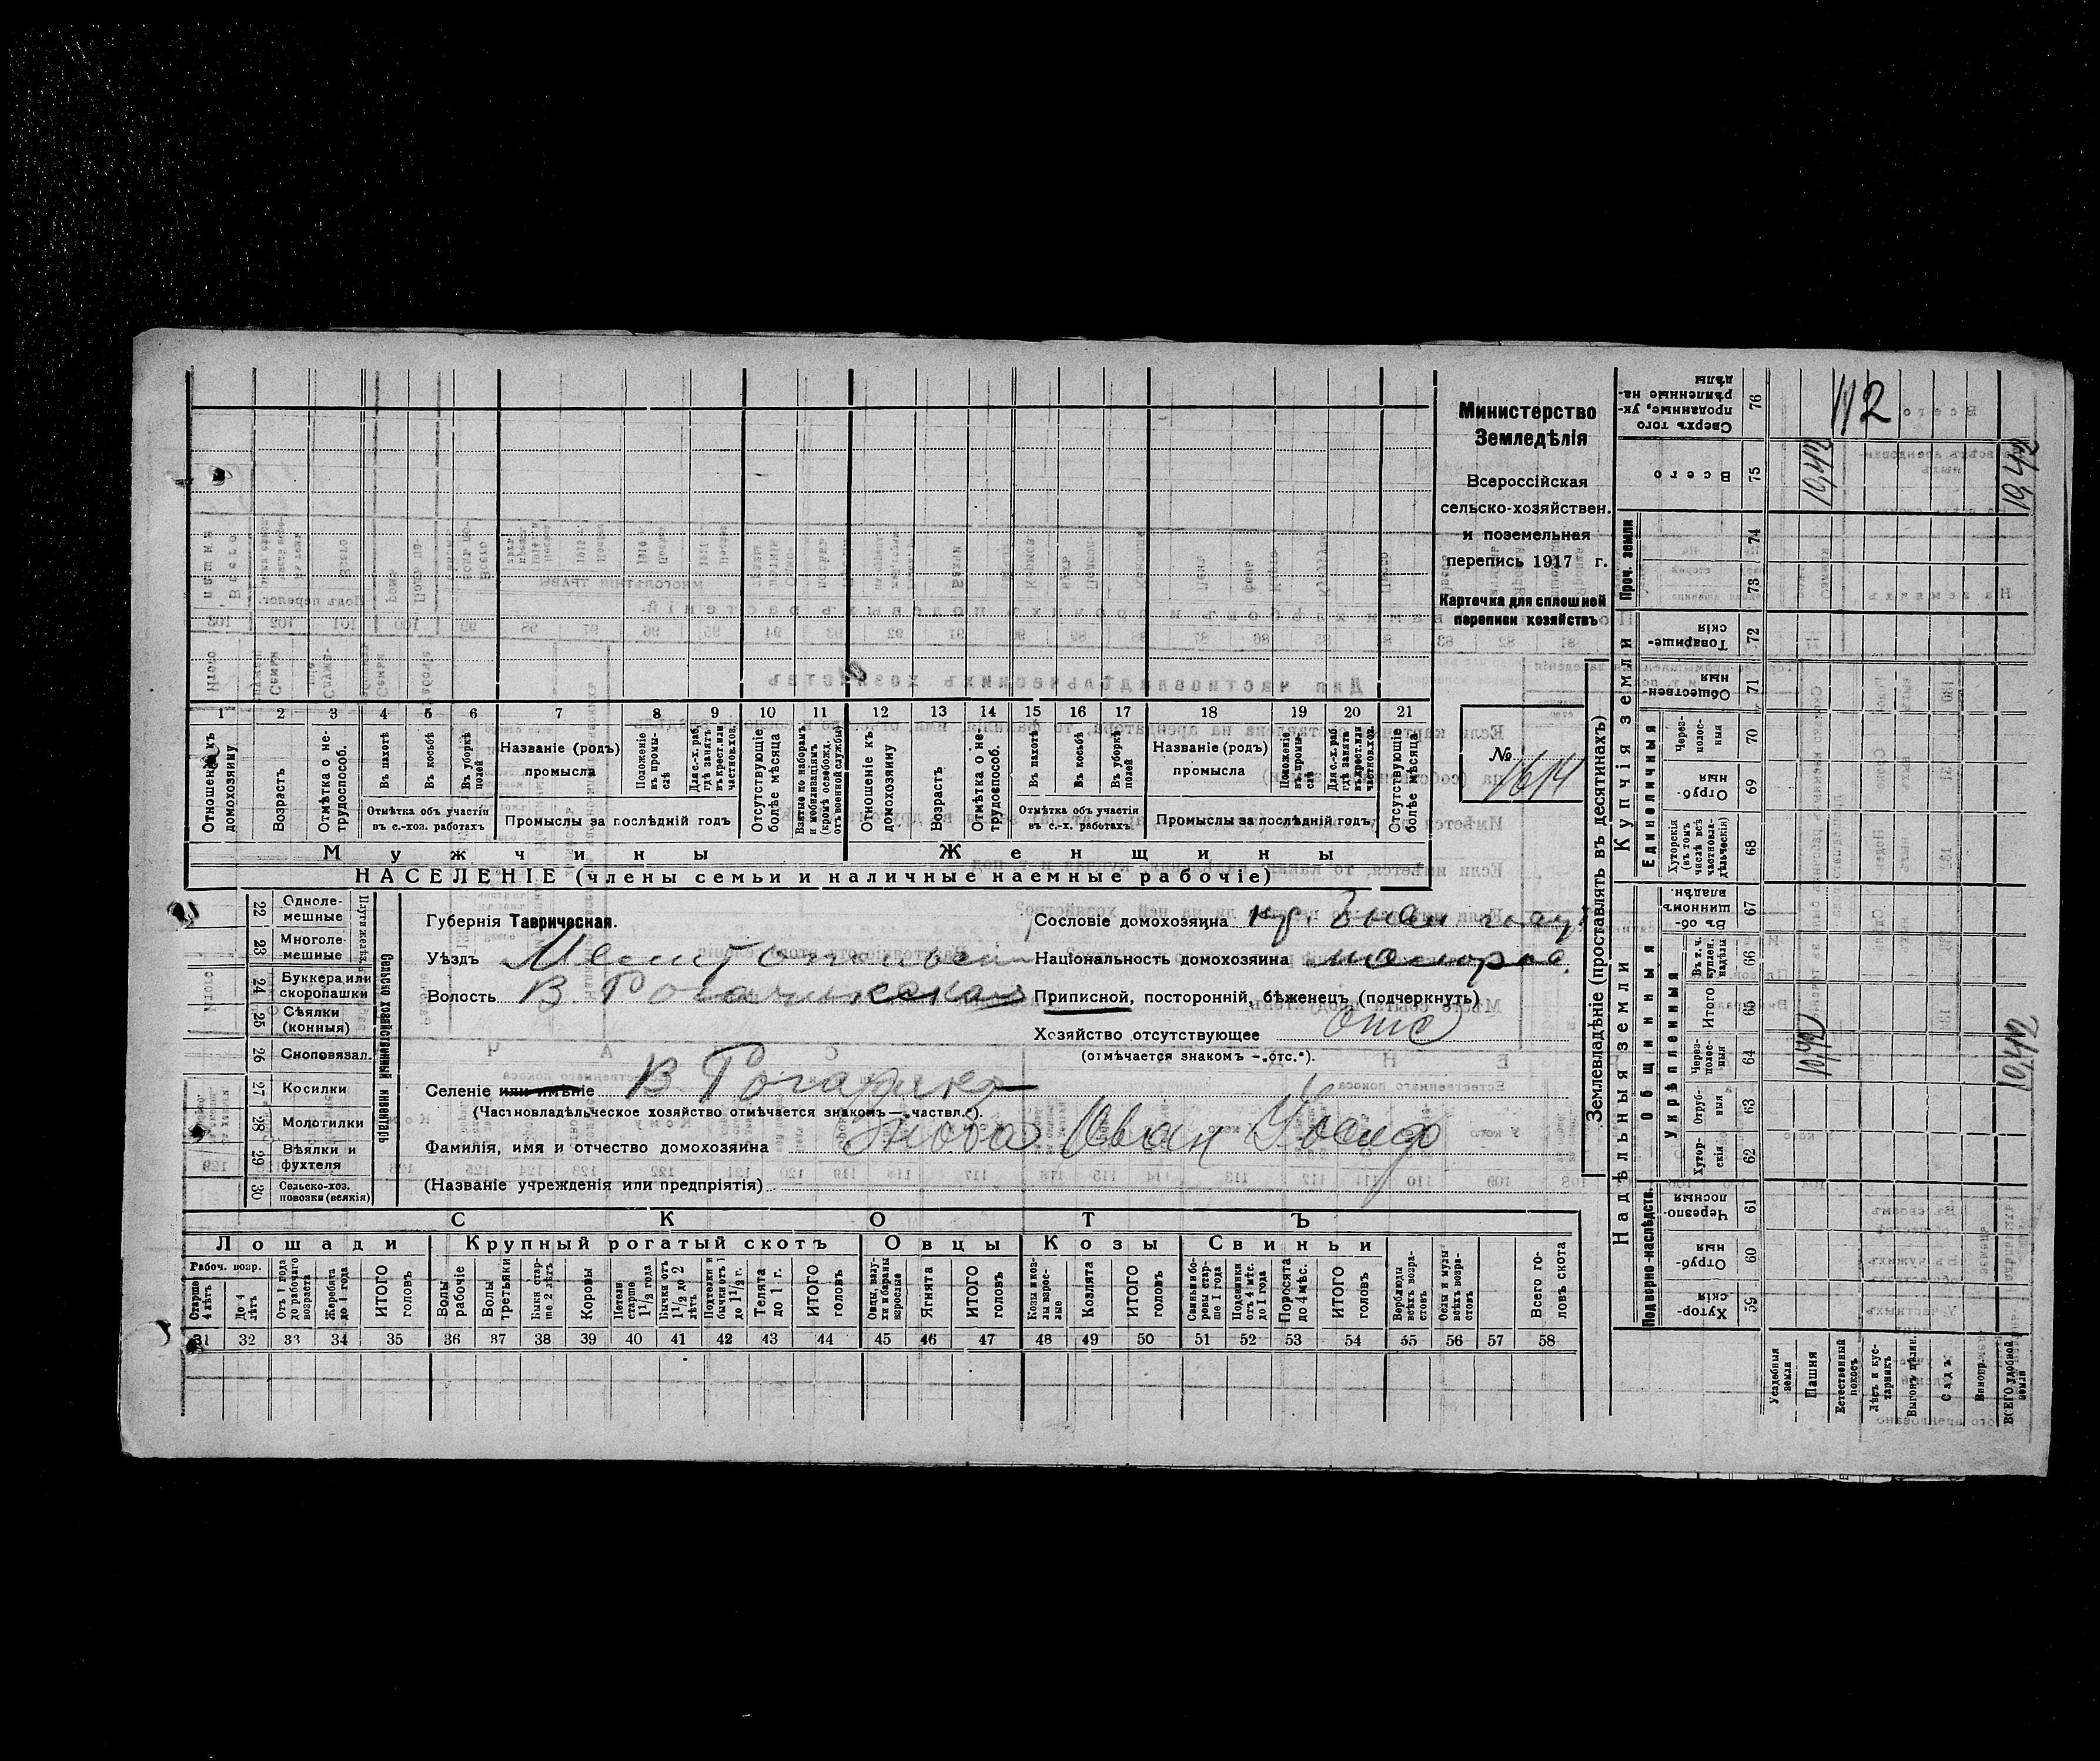 Министерство
Земледѣлія
Всероссійская
сельско-хозяйствен.
и поземельная
перепись 1917 г.
Карточка для сплошной
переписи хозяйствъ
№
1614
1 2 3 4 5 6 7 8 9 10 11 12 13 14 15 16 17 18 19 20 21
Отношеніе къ домохозяину
Возрастъ
Отмѣтка о не-трудоспособ.
Въ пахотѣ
Въ косьбѣ
Въ уборкѣ полей
Отмѣтка объ участіи
въ с.-хоз. работахъ
Названіе (родъ)
промысла
Положеніе въ промы-слѣ
Для с.-х. раб. гдѣ занятъ въ крест. или частнов. хоз.
Промыслы за послѣдній годъ
Отсутствующіе болѣе мѣсяца
Взятые по наборамъ и мобилизаціямъ (кромѣ освобожд. отъ военной службы)
Отношеніе къ домохозяину
Возрастъ
Отмѣтка о не-трудоспособ.
Въ пахотѣ
Въ косьбѣ
Въ уборкѣ полей
Отмѣтка объ участіи
въ с.-х. работахъ
Названіе (родъ)
промысла
Положеніе въ промы-слѣ
Для с.-х. раб. гдѣ занятъ въ крест. или частнов. хоз.
Промыслы за послѣдній годъ
Отсутствующіе болѣе мѣсяца
Мужчины Женщины
НАСЕЛЕНІЕ (члены семьи и наличные наемные рабочіе)
Сельско хозяйственный инвентарь
22 Одноле-мешные
23 Многоле-мешные
24 Буккера или скоропашки
25 Сѣялки (конныя)
26 Сноповязал.
27 Косилки
28 Молотилки
29 Вѣялки и фухтеля
30 Сельско-хоз. повозки (всякія)
Губернія Таврическая.
Уѣздъ Мелитопольскій
Волость В. Рогачикская
Селеніе или имѣніе В Рогачикъ
(Частновладѣльческое хозяйство отмѣчается знакомъ—„частвл.").
Фамилія, имя и отчество домохозяина Зноба Иван
(Названіе учрежденія или предпріятія)
Сословіе домохозяина кр.
Національность домохозяина малорос.
Приписной, посторонній, бѣженецъ (подчеркнуть)
Хозяйство отсутствующее отс
(отмѣчается знакомъ —„отс.").
СКОТЪ
Лошади Крупный рогатый скотъ Овцы Козы Свиньи
Рабоч. возр.
Старше 4 лѣтъ
До 4 лѣтъ
Отъ 1 года до рабочаго возраста
Жеребята до 1 года
ИТОГО головъ
Волы рабочіе
Волы третьяки
Быки стар-ше 2 лѣтъ
Коровы
Нетели старше 1 1/2 года
Бычки отъ 1 1/2 до 2 лѣтъ
Подтелки и бычки отъ 1 до 1 1/2 г.
Телята до 1 г.
ИТОГО головъ
Овцы, валу-хи и бараны взрослые
Ягнята
ИТОГО головъ
Козы и коз-лы взрос-лые
Козлята
ИТОГО головъ
Свиньи и бо-ровы стар-ше 1 года
Подсвинки отъ 4 мѣс. до 1 года
Поросята до 4 мѣс.
ИТОГО головъ
Верблюды всѣхъ возра-стовъ
Ослы и мулы всѣхъ возра-стовъ
Всего го-ловъ скота
31 32 33 34 35 36 37 38 39 40 41 42 43 44 45 46 47 48 49 50 51 52 53 54 55 56 57 58
Землевладѣніе (проставлять въ десятинахъ)
Надѣльныя земли Купчія земли
Подворно-наслѣдств.
Общинныя
Укрѣпленныя
Единоличныя
Проч. земли
Хутор-скія 59
Отруб-ныя 60
Черезпо-лосныя 61
Хутор-скія 62
Отруб-ныя 63
Через-полос-ныя 64
Итого 65
Въ т. ч. куплен. надѣлы 66
Въ об-щинномъ владѣн. 67
Хуторскія (въ томъ числѣ всѣ частновла-дѣльческія) 68
Отруб-ныя 69
Через-полос-ныя 70
Обществен-ныя 71
Товарище-скія 72
73
74
Всего 75
Сверхъ того проданные, ук-рѣпленные на-дѣлы 76
Усадебныя земли
Пашня
Естественный покосъ
Лѣсъ и кус-тарникъ
Выгонъ цѣлин.
Садъ
Виногр.
ВСЕГО удобной земли
112
10,42
10,42
10,42
10,42